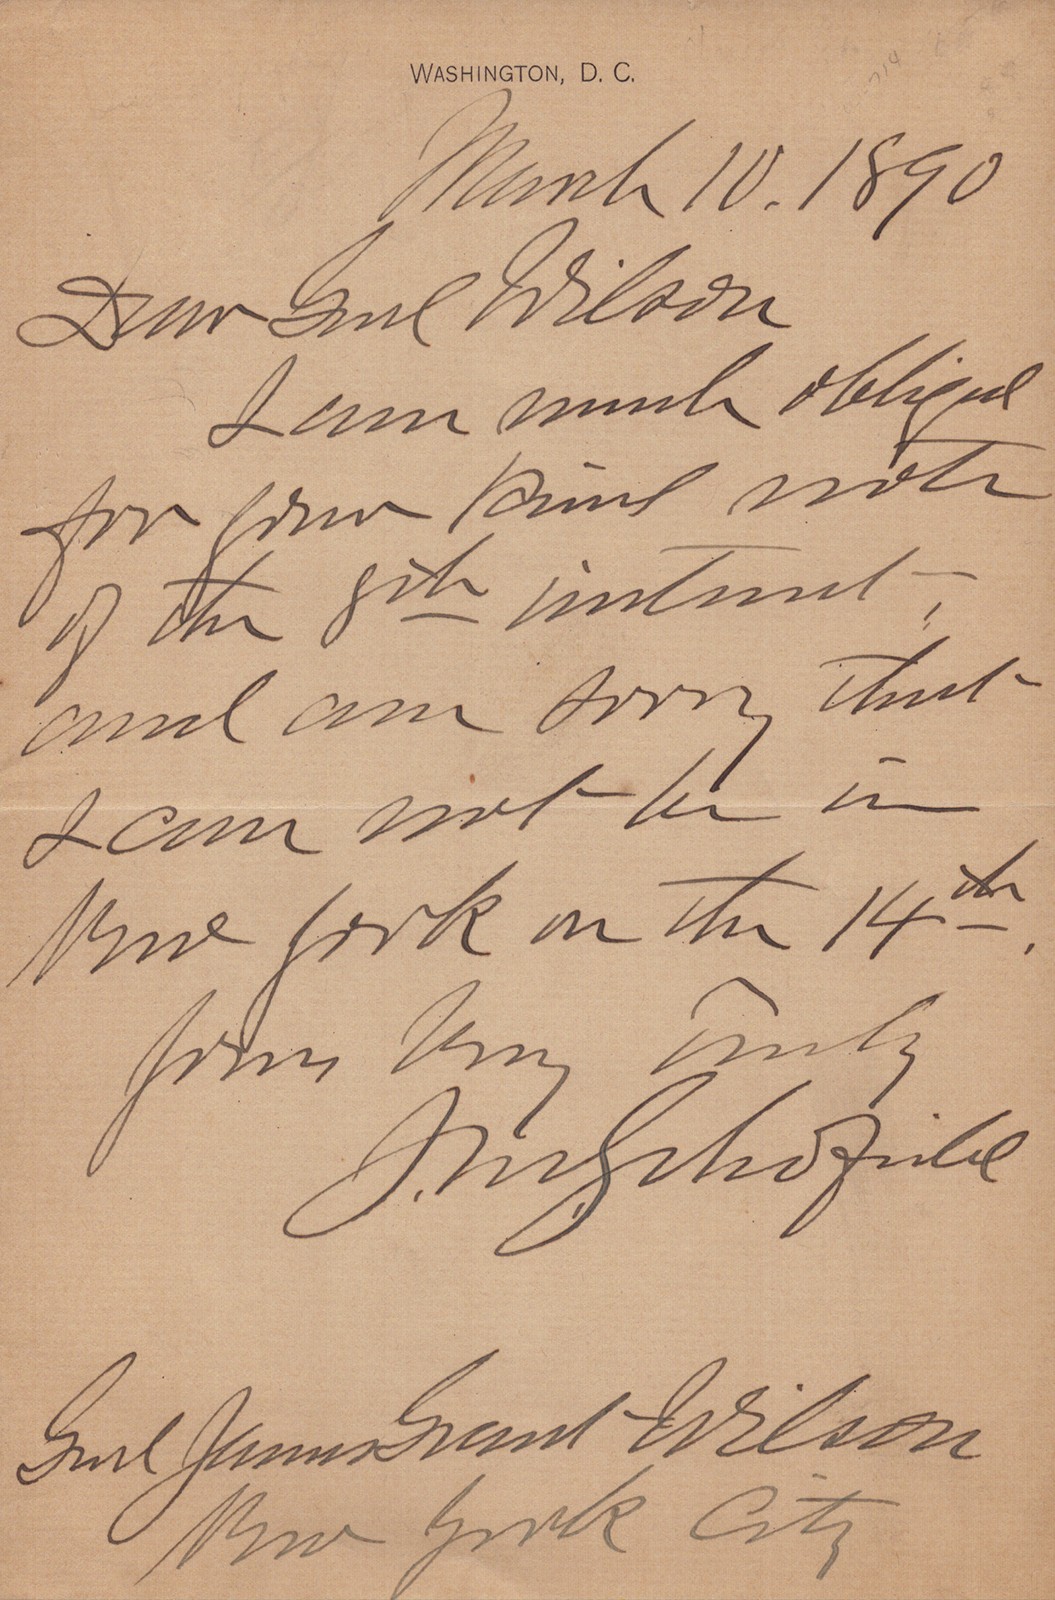 WASHINGTON, D. C.
March 10. 1890
Dear Genl Wilson
I am much obliged
for your kind note
of the 8th instant,
and am sorry that
I can not be in
New York on the 14th.
Yours Very Truly
J. M. Schofield
Genl James Grant Wilson
New York City